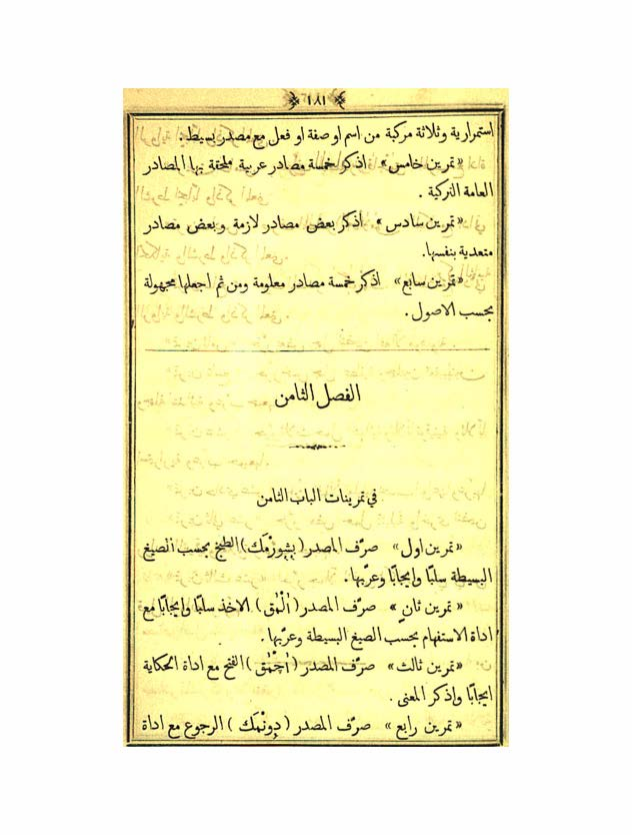 ١٨١
استمرارية وثلاثة مركبة من اسم او صفة او فعل مع مصدر بسيط .
«تمرين خامس» اذكر خمسة مصادر عربية ملحقة بها المصادر
العامة التركية .
«تمرين سادس» اذكر بعض مصادر لازمة وبعض مصادر
متعدية بنفسها.
«تمرين سابع» اذكر خمسة مصادر معلومة ومن ثم اجعلها مجهولة
بحسب الاصول .
الفصل الثامن
في تمرينات الباب الثامن
«تمرين اول» صرّف المصدر (پشورْمَك) الطبخ بحسب الصيغ
البسيطة سلبًا وايجابًا وعرّبها .
«تمرين ثان» صرّف المصدر (اَلْمَق) الاخذ سلبًا وايجابًا مع
اداة الاستفهام بحسب الصيغ البسيطة وعرّبها .
«تمرين ثالث» صرّف المصدر (اَچْمَق) الفتح مع اداة الحكاية
ايجابًا واذكر المعنى .
«تمرين رابع» صرّف المصدر (دونْمَك) الرجوع مع اداة